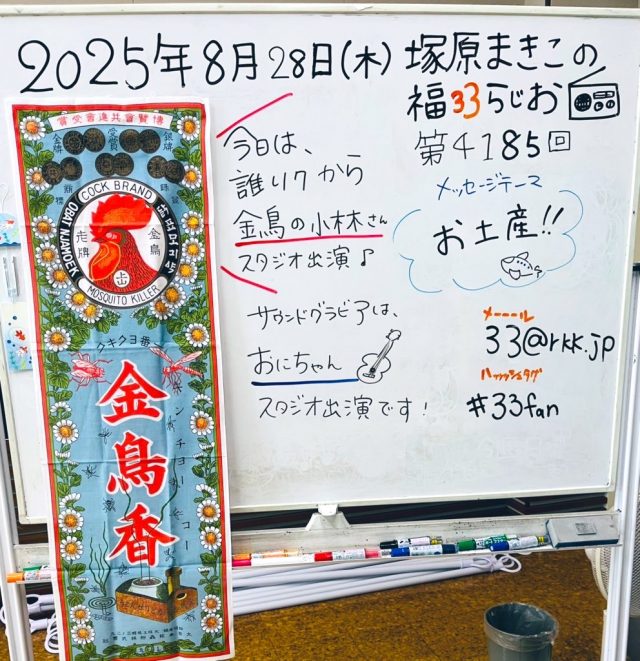 2025年8月28日(木) 塚原まきこの
福33らじお
第4185回
今日は、
誰リクから
金鳥の小林さん
スタジオ出演♪
サウンドグラビアは、
おにちゃん
スタジオ出演です!
メッセージテーマ
お土産!!
メーーール
33@rkk.jp
ハッシュタグ
#33fan
賞受會進共會覽博
COCK BRAND
MOSQUITO KILLER
金鳥
香ヨクキクヨ
金鳥香